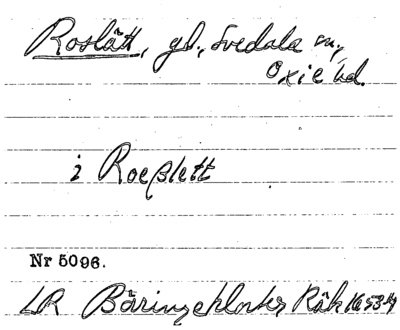 Roslätt, gd., Svedala sn,
Oxie hd.
i Roeßlett
Nr 5096.
LR Bäringe Räk 1653-4